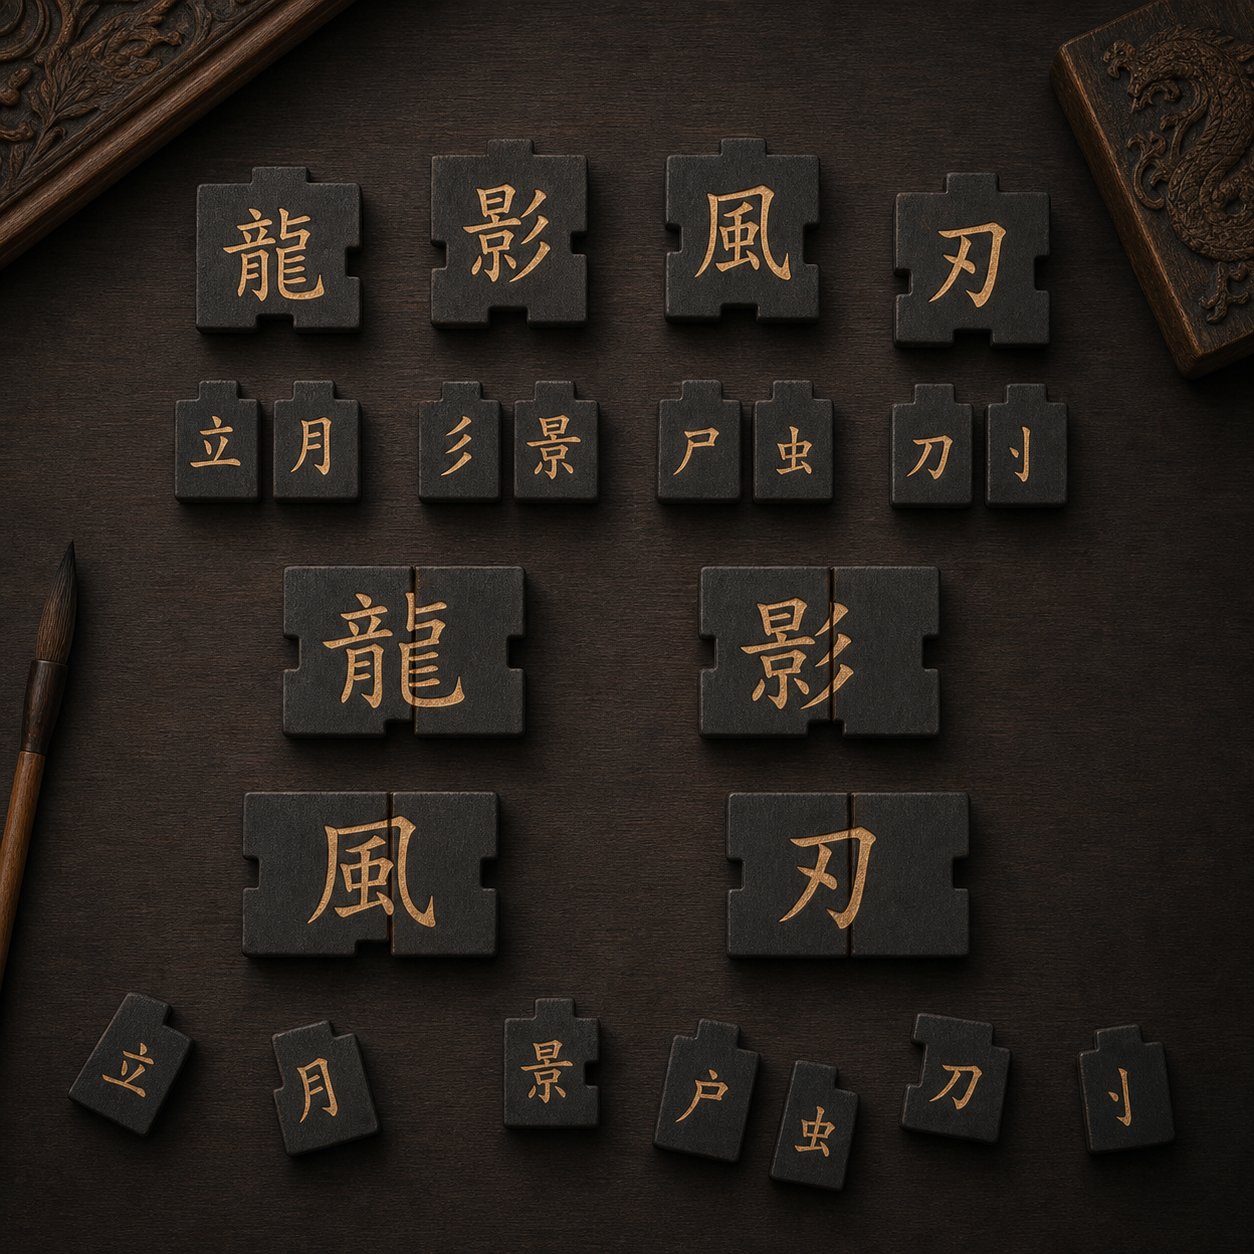 龍 影 風 刃
立 月 彡 景 尸 虫 刀
龍 影
風 刃
立 月 景 户 虫 刀